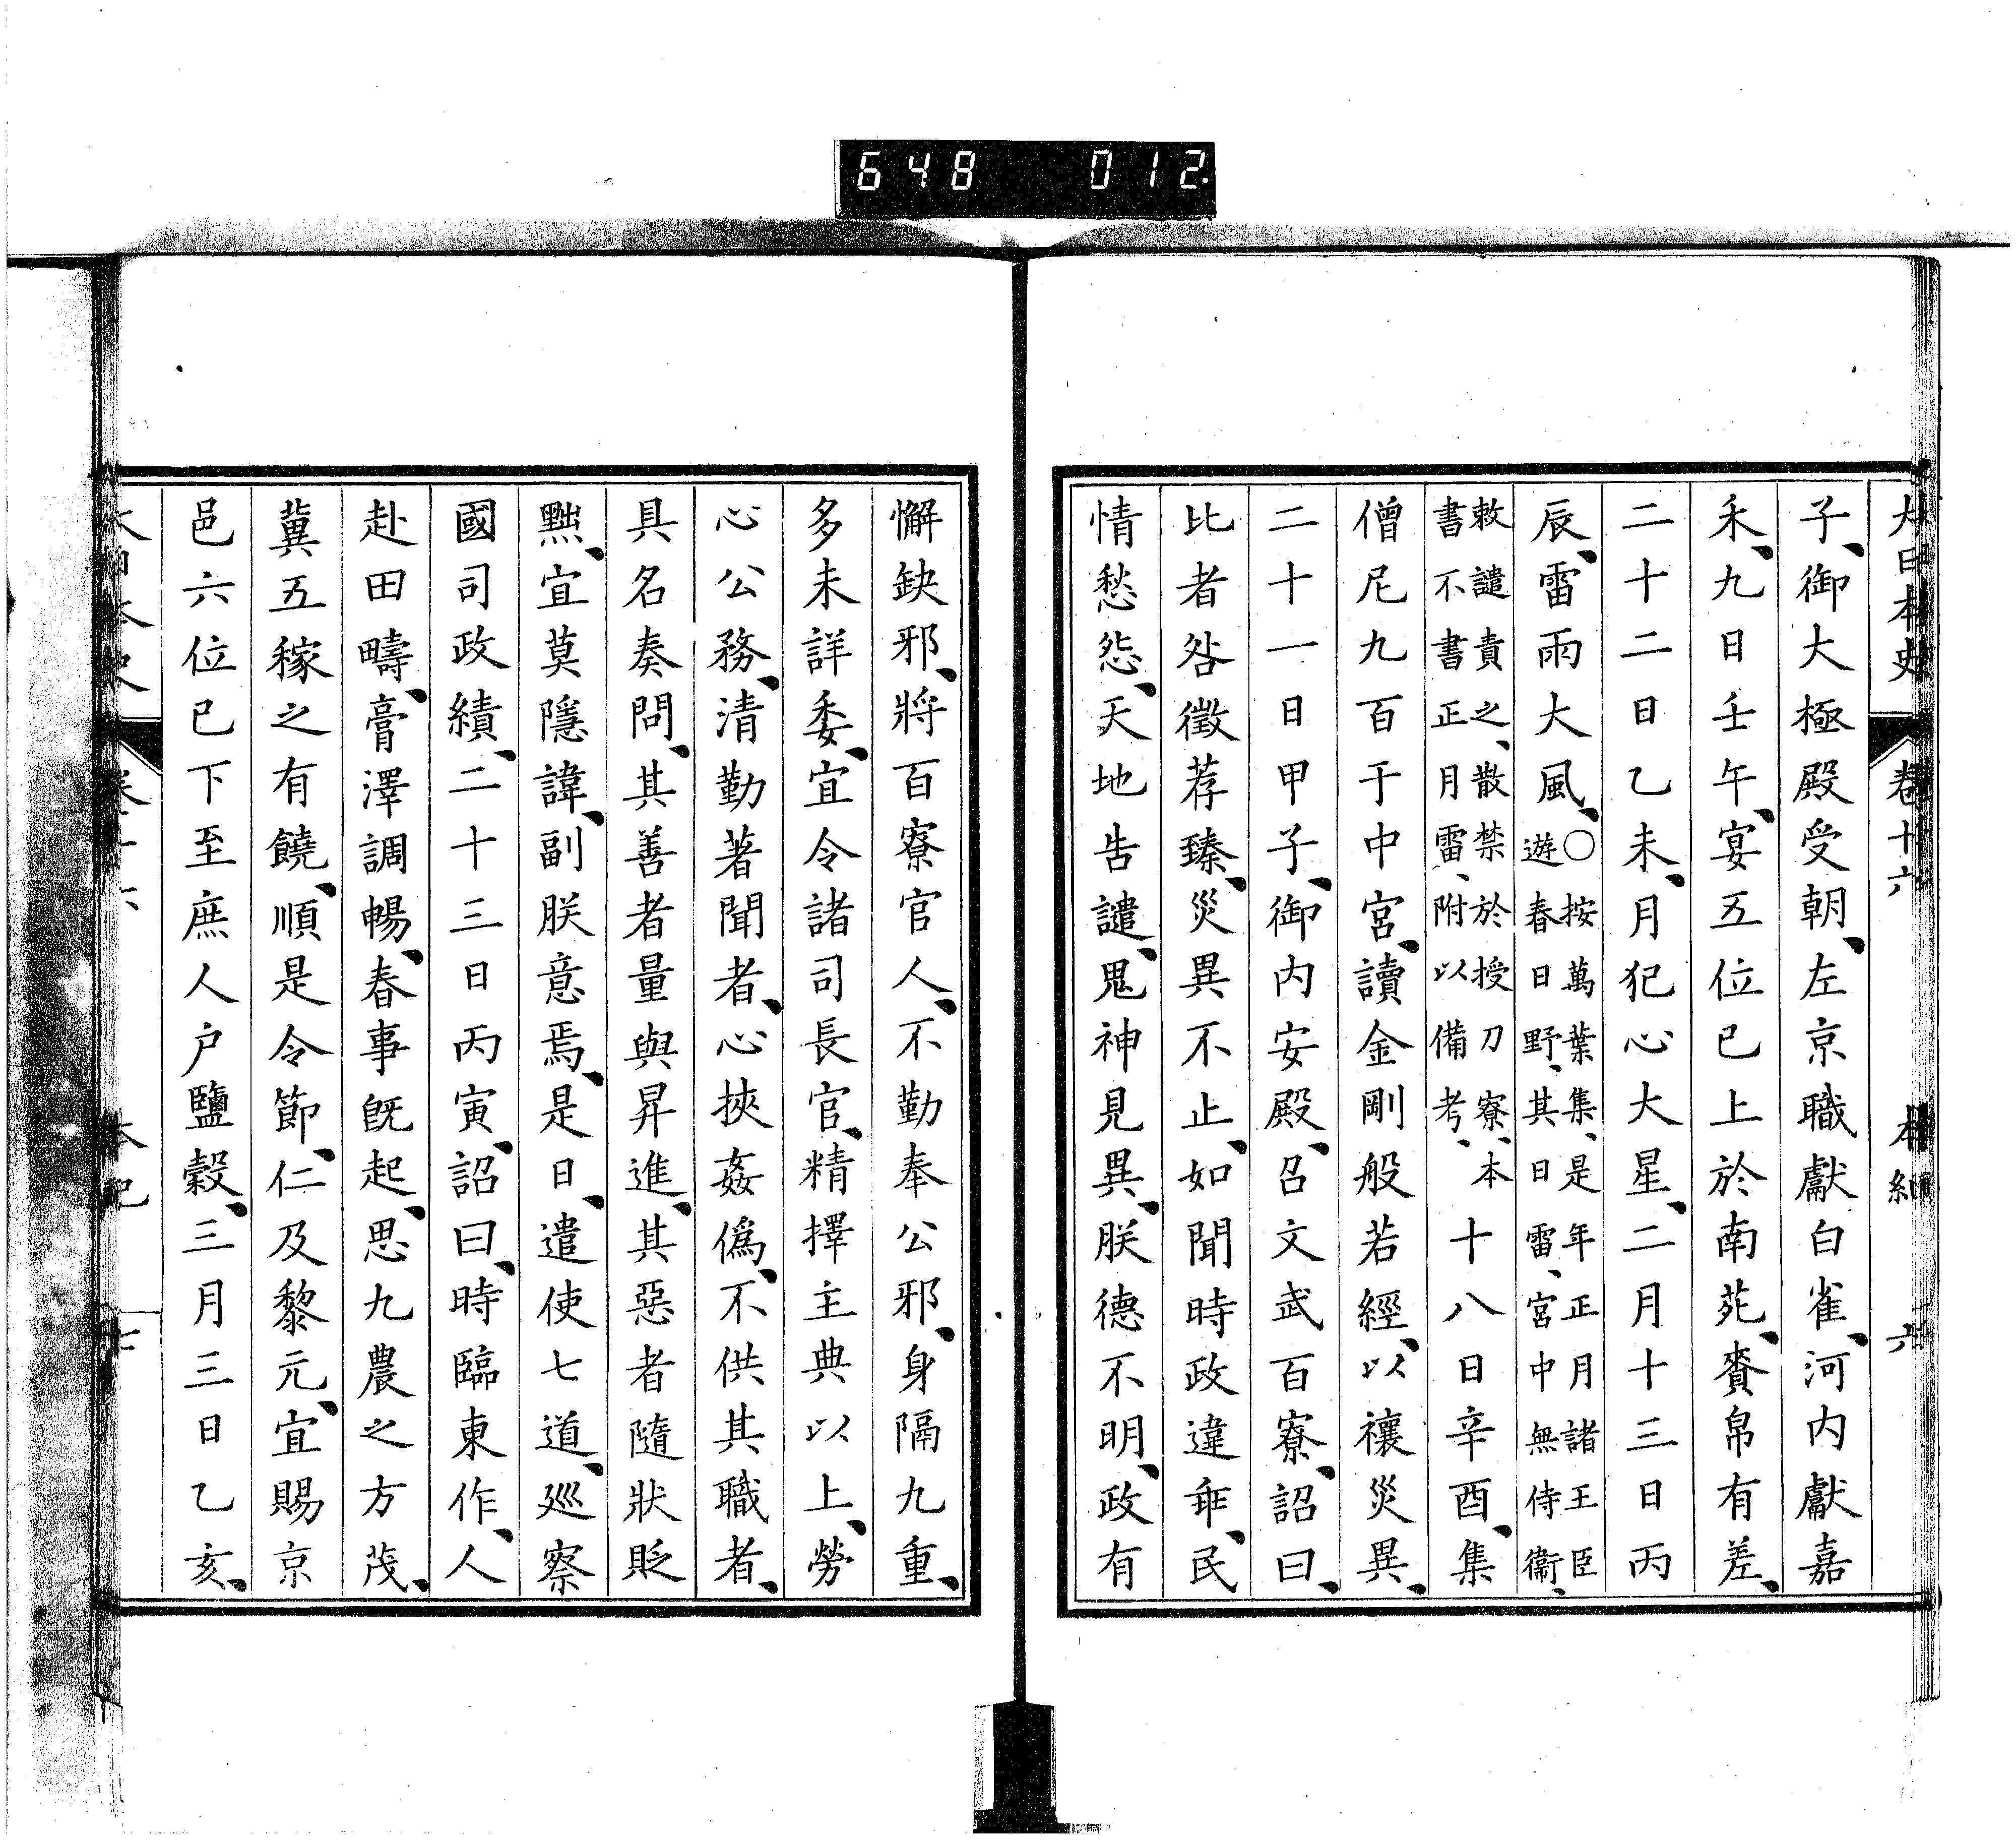 648 012
大日本史 卷十六 本紀 六
子、御大極殿受朝、左京職獻白雀、河内獻嘉
禾、九日壬午、宴五位已上於南苑、賚帛有差、
二十二日乙未、月犯心大星、二月十三日丙
辰、雷雨大風、〇按萬葉集、是年正月諸王臣
遊春日野、其日雷、宮中無侍衞、
敕譴責之、散禁於授刀寮、本
書不書正月雷、附以備考、十八日辛酉、集
僧尼九百于中宮、讀金剛般若經、以禳災異、
二十一日甲子、御内安殿、召文武百寮、詔曰、
比者咎徵荐臻、災異不止、如聞時政違乖、民
情愁怨、天地告譴、鬼神見異、朕德不明、政有
懈缺邪、將百寮官人、不勤奉公邪、身隔九重、
多未詳委、宜令諸司長官、精擇主典以上、勞
心公務、清勤著聞者、心挾姦僞、不供其職者、
具名奏問、其善者量與昇進、其惡者隨狀貶
黜、宜莫隱諱、副朕意焉、是日、遣使七道、巡察
國司政績、二十三日丙寅、詔曰、時臨東作、人
赴田疇、膏澤調暢、春事旣起、思九農之方茂、
冀五稼之有饒、順是令節、仁及黎元、宜賜京
邑六位已下至庶人戶鹽穀、三月三日乙亥、
本紀 七